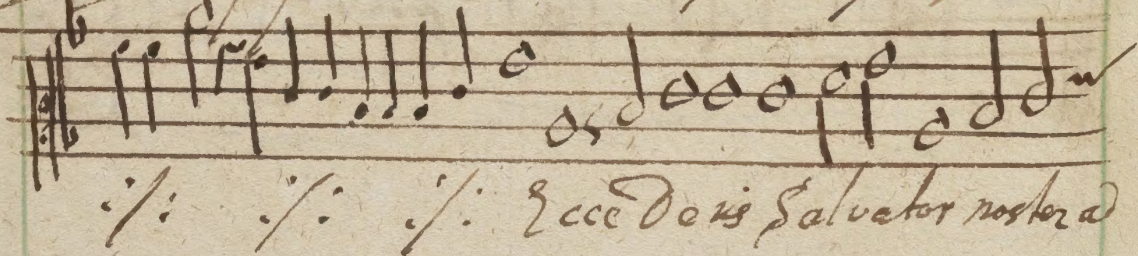 ·/: ·/: ·/: Ecce Deus Salvator noster ad